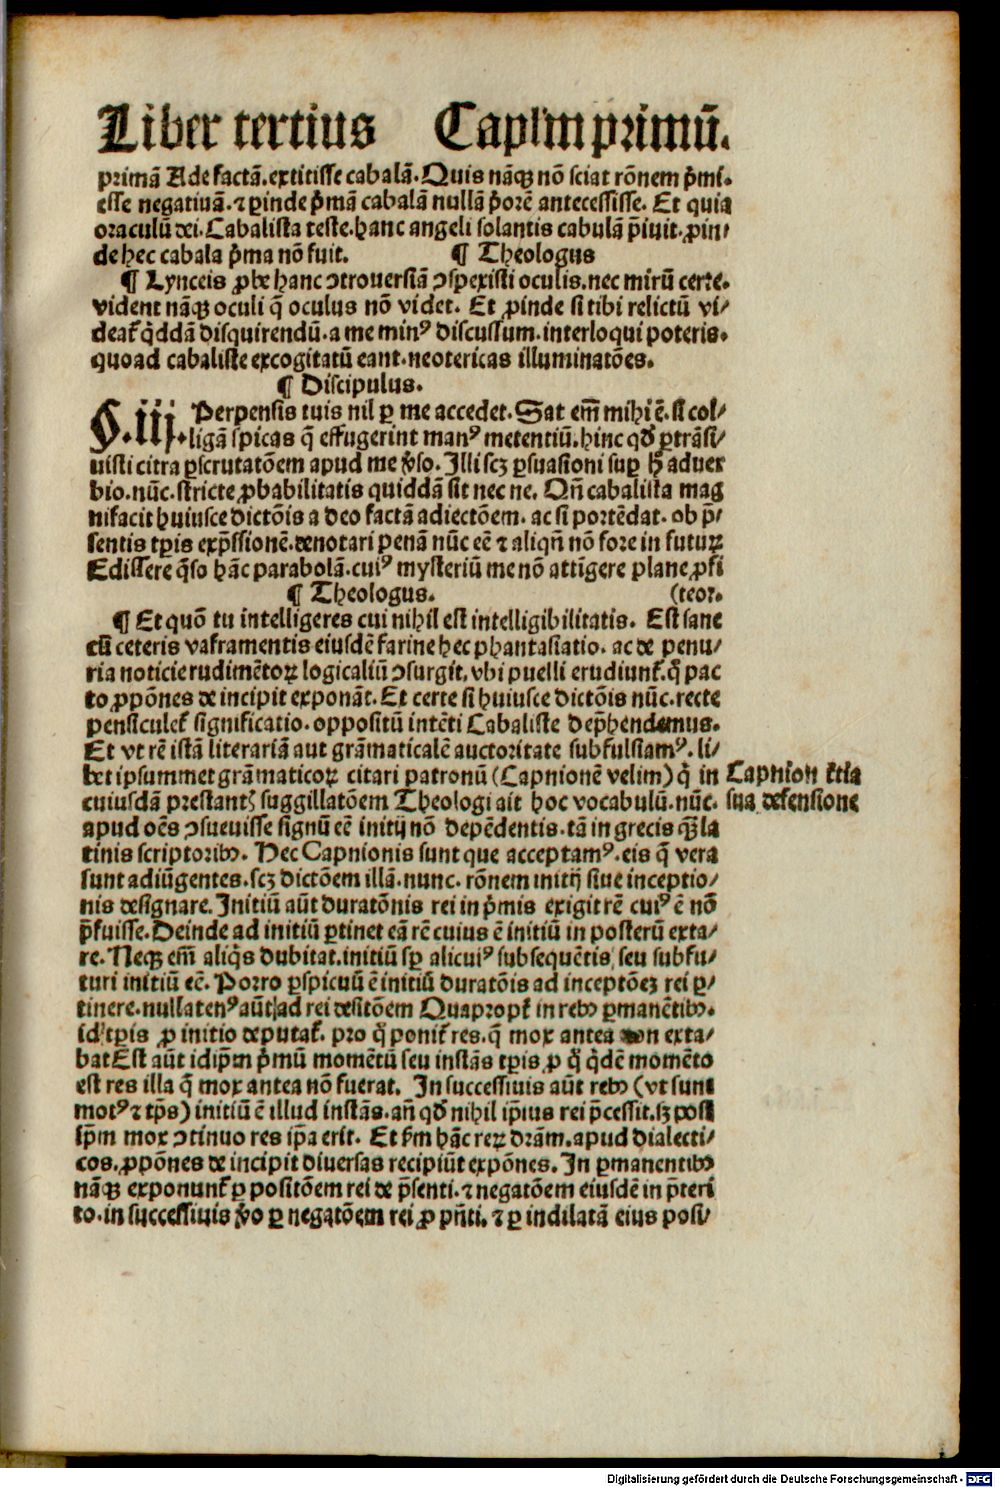 Liber tertius Capl'm primū.
primā Ade factā.extitisse cabalā.Quis nāqȝ nō sciat rōnem p̄mi.
esse negatiuā.⁊ ꝑinde p̄mā cabalā nullā p̄orē antecessisse. Et quia
oraculū dei.Cabalista teste.hanc angeli solantis cabulā p̄iuit.ꝓin/
de hec cabala p̄ma nō fuit. ¶ Theologus
¶ Lynceis ꝓbe hanc ↄtrouersiā ↄspexisti oculis.nec mirū certe.
vident nāqȝ oculi q̄ oculus nō videt. Et ꝓinde si tibi relictū vi/
deat᷑ q̄ddā disquirendū.a me minꝰ discussum.interloqui poteris.
quoad cabaliste excogitatū eant.neotericas illuminatōes.
¶ Discipulus.
§.iij. Perpensis tuis nil ꝑ me accedet.Sat em̄ mihi ē.si col/
ligā spicas q̄ effugerint manꝰ metentiū.hinc qd̄ ꝑtrāsi/
uisti citra ꝑscrutatōem apud me v̄so. Illi scȝ ꝑsuasioni suꝑ h̄ aduer
bio.nūc.stricte ꝓbabilitatis quiddā sit nec ne. Qn̄ cabalista mag
nifacit huiusce dictōis a deo factā adiectōem. ac si portēdat. ob p̄/
sentis tꝑis exp̄ssionē.denotari penā nūc eē ⁊ aliqn̄ nō fore in futuꝝ
Edissere q̄so hāc parabolā.cuiꝰ mysteriū me nō attīgere plane ꝓfi
¶ Theologus. (teor.
¶ Et quō tu intelligeres cui nihil est intelligibilitatis. Est sane
cū ceteris vaframentis eiusdē farine hec phantasiatio. ac de penu/
ria noticie rudimētoꝝ logicaliū ↄsurgit.vbi puelli erudiunt᷑.q̄ pac
to ꝓpōnes de incipit exponāt. Et certe si huiusce dictōis nūc.recte
pensiculet᷑ significatio.oppositū intēti Cabaliste dep̄hendemus.
Et vt rē istā literariā aut grāmaticalē auctoritate subfulsiamꝰ.li/
bet ipsummet grāmaticoꝝ citari patronū (Capnionē velim) q̄ in
cuiusdā prestantꝭ suggillatōem Theologi ait hoc vocabulū.nūc.
apud oēs ↄsueuisse signū eē initij nō depēdentis.tā in grecis qȝ la
tinis scriptoribꝰ. Hec Capnionis sunt que acceptamꝰ.eis q̄ vera
sunt adiūgentes.scȝ dictōem illā.nunc. rōnem initij siue inceptio/
nis designare. Initiū aūt duratōnis rei in p̄mis exigit rē cuiꝰ ē nō
p̄fuisse. Deinde ad initiū ꝑtinet eā rē cuius ē initiū in posterū exta/
re. Neqȝ em̄ aliq̄s dubitat.initiū sꝑ alicuiꝰ subsequētis, seu subfu/
turi initiū eē. Porro ꝑspicuū ē initiū duratōis ad inceptōeȝ rei ꝑ/
tinere.nullatenꝰ aūt ad rei desitōem Quapropt᷑ in rebꝰ ꝑmanētibꝰ.
id tꝑis ꝓ initio deputat᷑. pro q̄ ponit᷑ res. q̄ mox antea non exta/
bat Est aūt id ip̄m p̄mū momētū seu instās tꝑis ꝓ q̄ q̄dē momēto
est res illa q̄ mox antea nō fuerat. In successiuis aūt rebꝰ (vt sunt
motꝰ ⁊ tp̄s) initiū ē illud instās.añ qd̄ nihil ip̄ius rei p̄cessit.sȝ post
ip̄m mox ↄtinuo res ip̄a erit. Et fm̄ hāc reꝝ dr̄am.apud dialecti/
cos.ꝓpōnes de incipit diuersas recipiūt expōnes. In ꝑmanentibꝰ
nāqȝ exponunt᷑ ꝑ positōem rei de p̄senti.⁊ negatōem eiusdē in p̄teri
to.in successiuis v̄o ꝑ negatōem rei ꝓ pn̄ti. ⁊ ꝑ indilatā eius posi/
Capnion
sua defensione
Digitalisierung gefördert durch die Deutsche Forschungsgemeinschaft - DFG